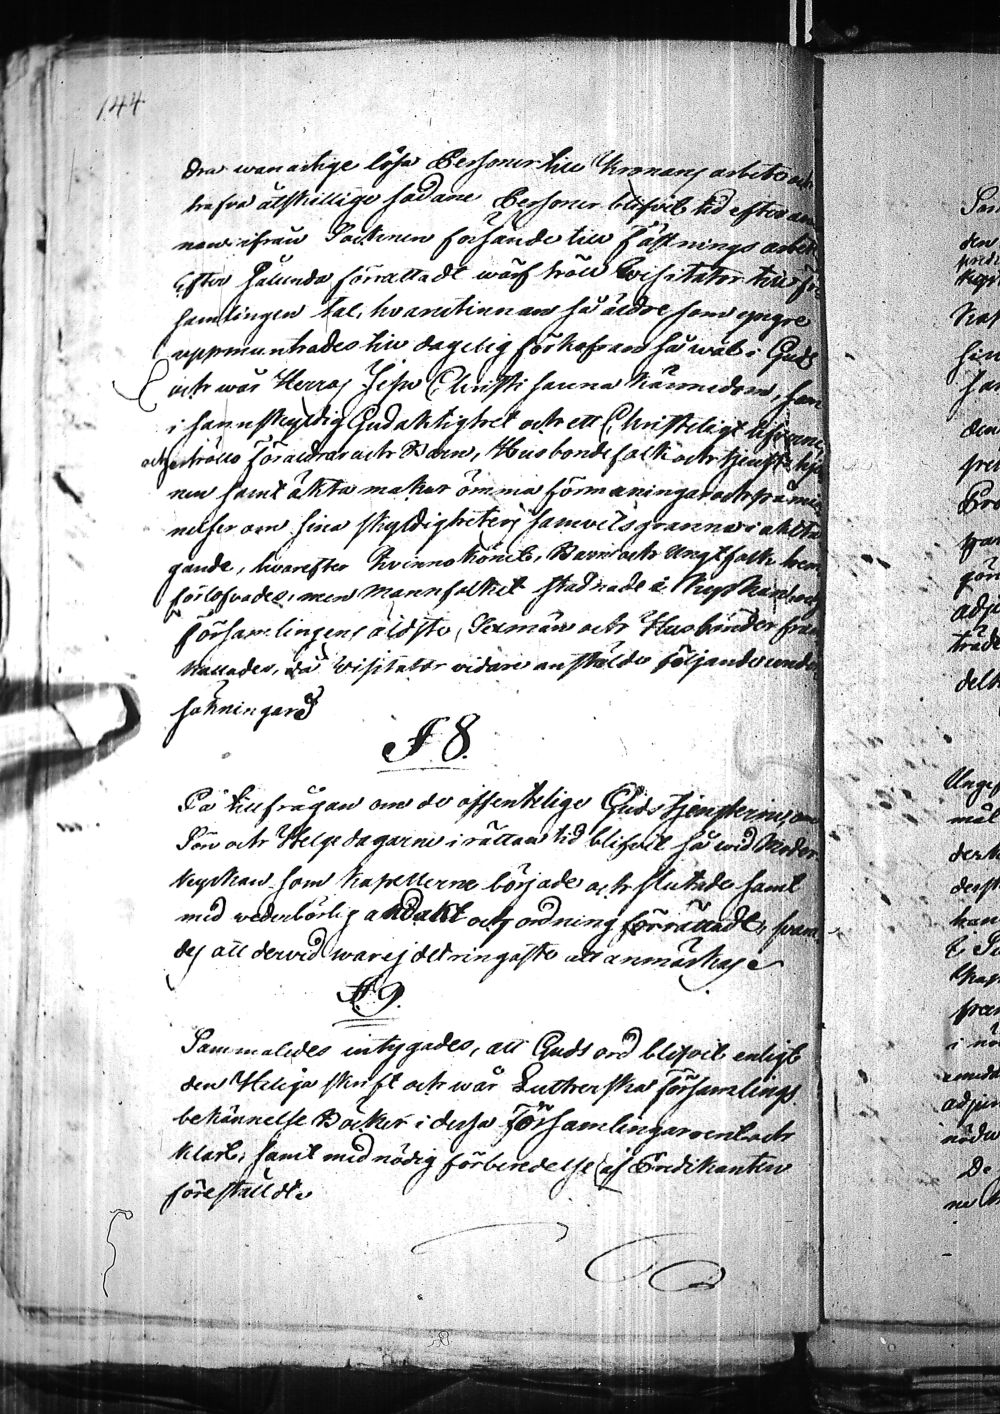 144
dra wanartige lösa Personer till Kronans arbete och
hafva åtskillige sådane Personer blifvit tid efter an
nan ifrån Socknen försände till Fästnings arbete
Efter sålunda förrättadt wärf höll Visitator till för
samlingen tal, hvarutinnan så äldre som yngre
uppmuntrades till dagelig förkofran så wäl i Guds
och wår Herras Jesu Christi sanna kännedom, som
i sannskyldig Gudaktighet och ett Christeligt lefverne,
och erhöllo Föräldrar och Barn, Husbondefolk och tjenstehjo
nen samt äkta makar ömma förmaningar och påmin
nelser om sina skyldigheters samvetsgranna iakta
gande, hvarefter Kvinnokönet, Barn och Ungt folk hem
förlofvades, men Mannfolket stadnade i Kyrkan, och
Församlingens äldste, Sexmän och Husbönder fram
kallades, då Visitator vidare anstälde följande under
sökningar
§ 8.
På tillfrågan om de offentelige Gudstjensterne om
Sön och Helgedagarne i rättan tid blifvit så wid Moder
kyrkan som Kapellerne började och slutade samt
med wederbörlig andakt och ordning förrättade, svara
des att derwid war ej det ringaste att anmärkas
§ 9.
Sammaledes intygades, att Guds ord blifvit enligt
den Heliga skrift och wår Lutherska Församlings
bekännelse Böcker i dessa Församlingar rent och
klart, samt med nödig förberedelse af Predikanten
förestäldt.